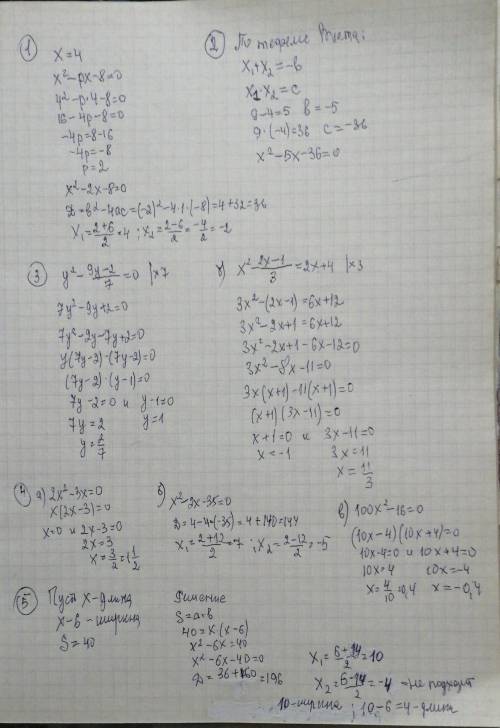 ① x=4
x²-px-8=0
4²-p·4-8=0
16-4p-8=0
-4p=8-16
-4p=-8
p=2
x²-2x-8=0
D=в²-4ac=(-2)²-4·1·(-8)=4+32=36
x₁=(2+6)/2=4; x₂=(2-6)/2=-4/2=-2
② По теореме Виета:
x₁+x₂=-в
x₁·x₂=c
9-4=5 в=-5
9·(-4)=36 c=-36
x²-5x-36=0
③ y²-(9y-2)/7=0 |×7
7y²-9y+2=0
7y²-2y-7y+2=0
y(7y-2)-(7y-2)=0
(7y-2)·(y-1)=0
7y-2=0 и y-1=0
7y=2 y=1
y=2/7
б) x²-(2x-1)/3=2x+4 |×3
3x²-(2x-1)=6x+12
3x²-2x+1=6x+12
3x²-2x+1-6x-12=0
3x²-8x-11=0
3x(x+1)-11(x+1)=0
(x+1)(3x-11)=0
x+1=0 и 3x-11=0
x=-1 3x=11
x=11/3
④ а) 2x²-3x=0
x(2x-3)=0
x=0 и 2x-3=0
2x=3
x=3/2=1 1/2
б) x²-2x-35=0
D=4-4·(-35)=4+140=144
x₁=(2+12)/2=7; x₂=(2-12)/2=-5
в) 100x²-16=0
(10x-4)(10x+4)=0
10x-4=0 и 10x+4=0
10x=4 10x=-4
x=4/10=0,4 x=-0,4
⑤ Пусть x-длина
x-6-ширина
S=40
Решение
S=a·в
40=x·(x-6)
x²-6x=40
x²-6x-40=0
D=36+160=196
x₁=(6+14)/2=10
x₂=(6-14)/2=-4 => не подходит
10-ширина; 10-6=4-длина